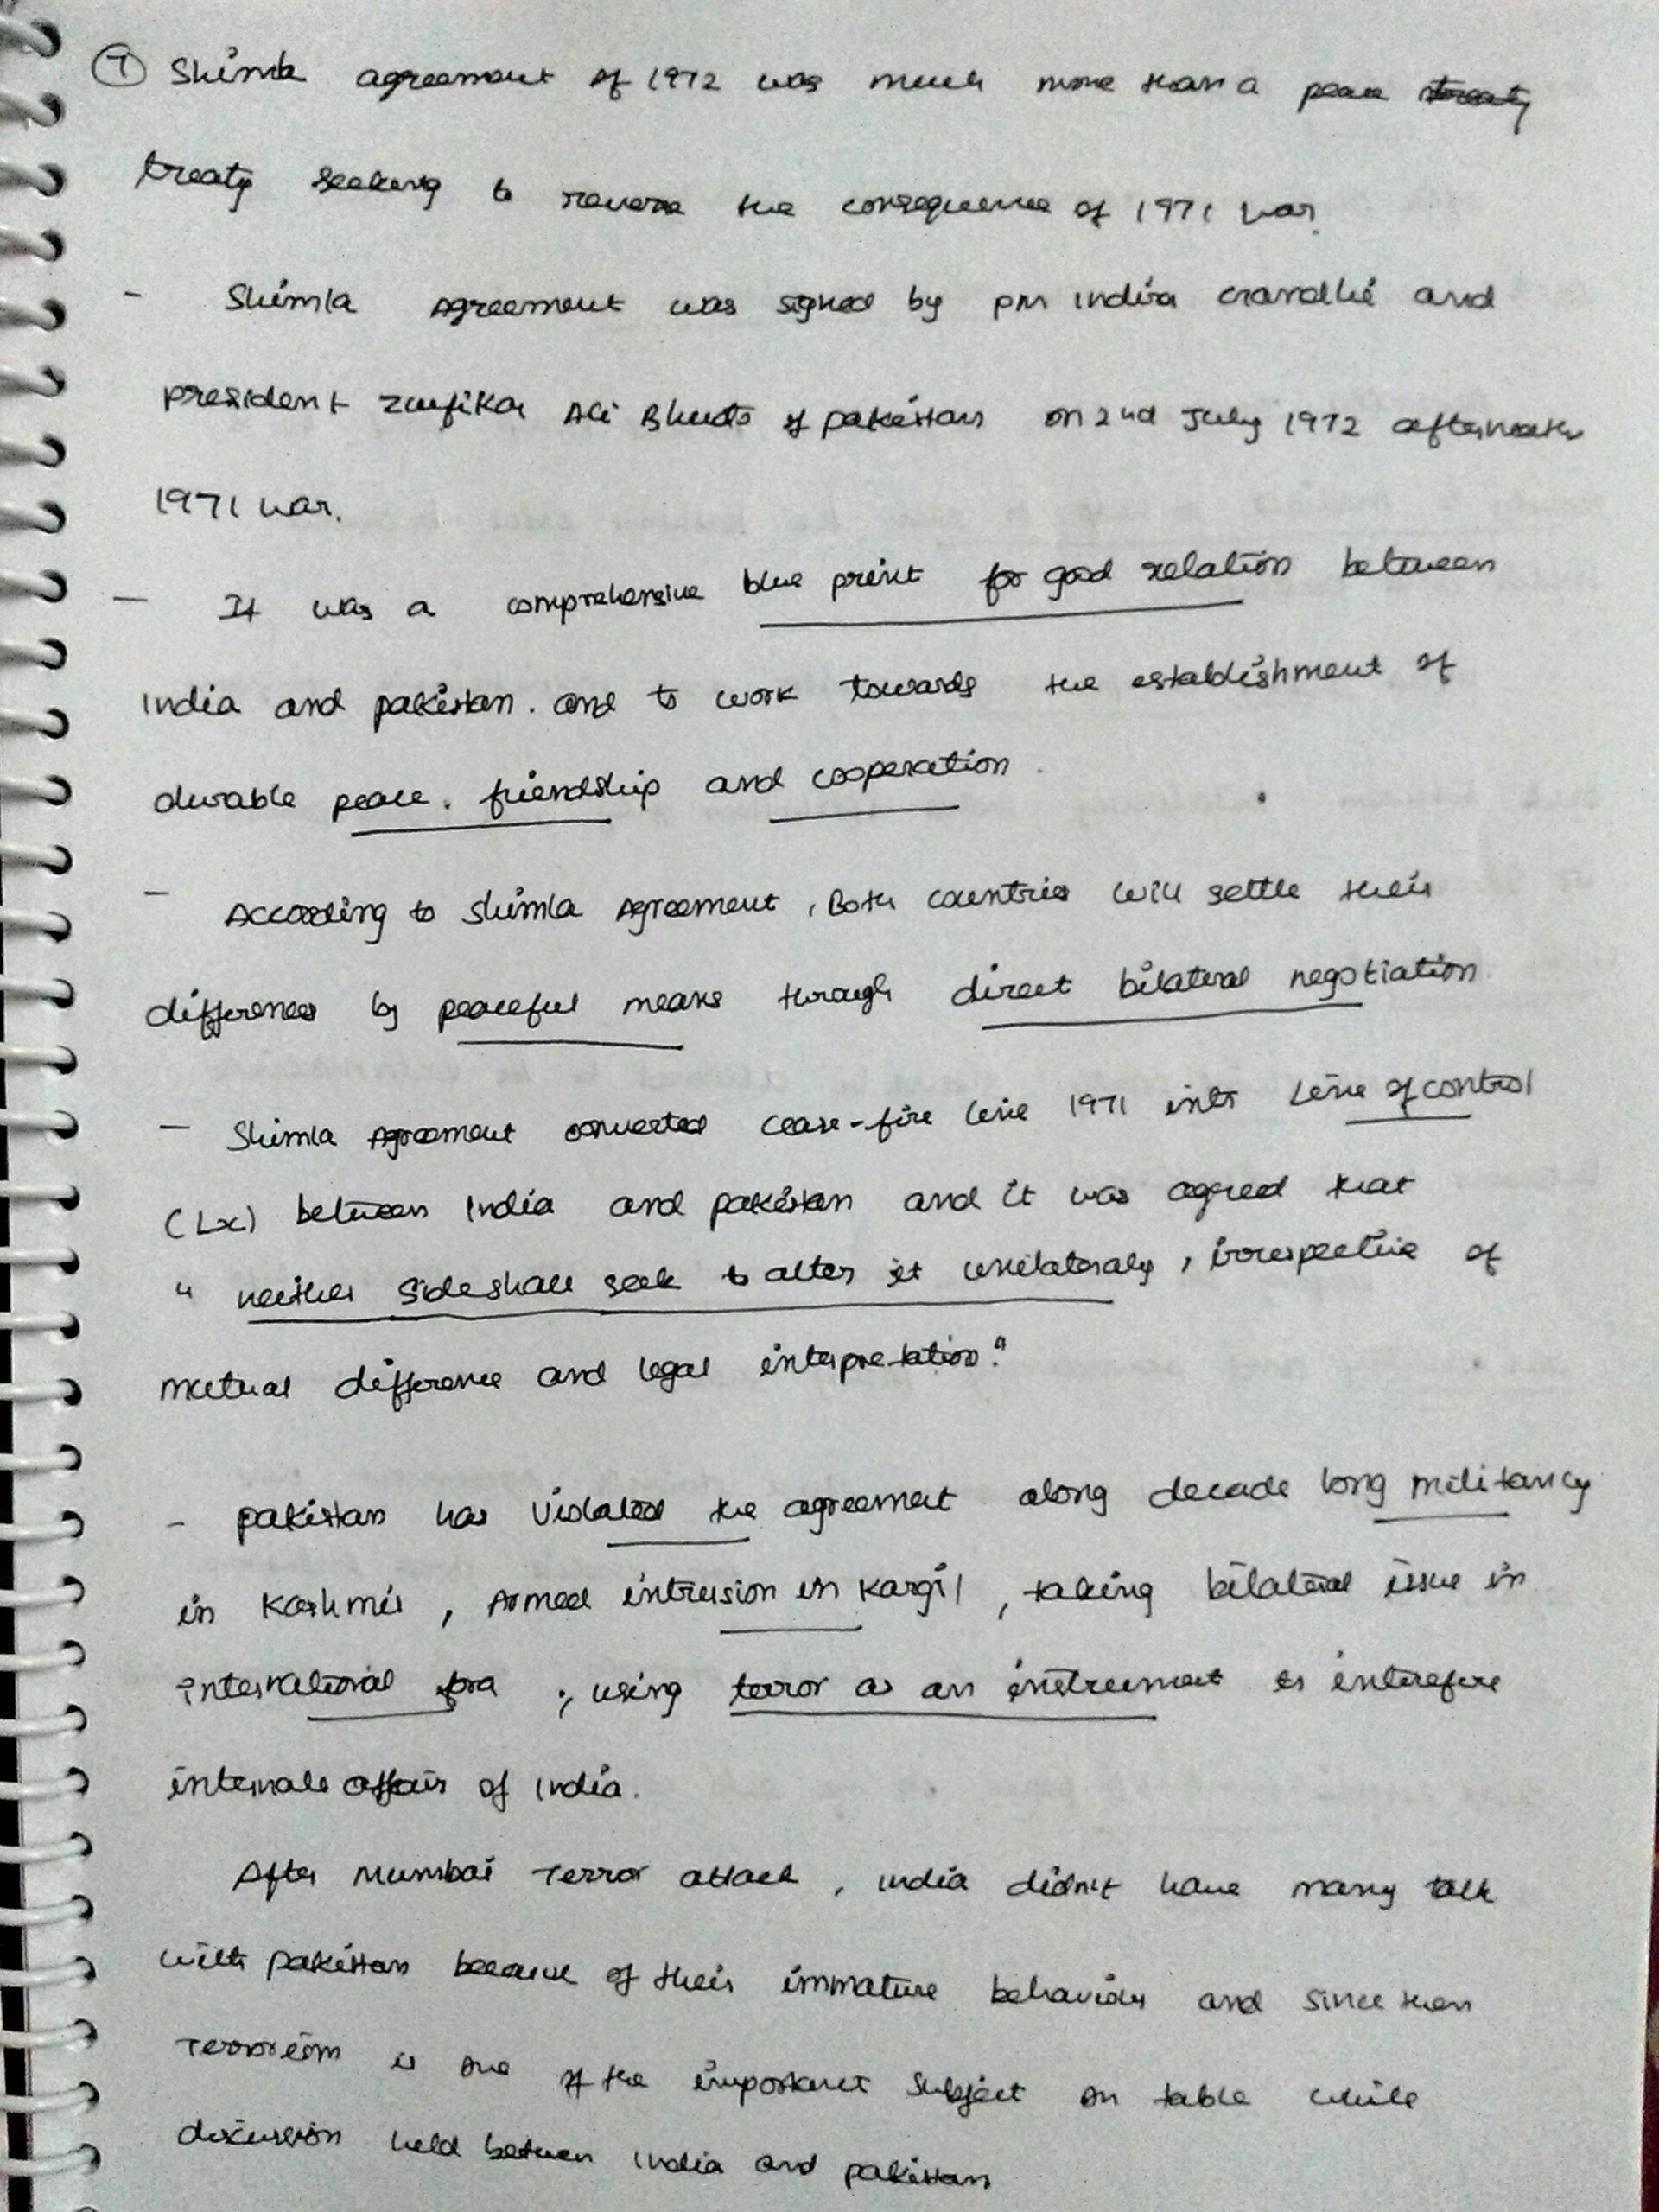 ⑦ Shimla agreement of 1972 was much more than a peace treaty
treaty seeking to reverse the consequence of 1971 war.
- Shimla Agreement was signed by pm indira Gandhi and
president Zulfikar Ali Bhutto of pakistan on 2nd July 1972 aftermath
1971 war.
- It was a comprehensive blue print for good relation between
India and pakistan. and to work towards the establishment of
durable peace, friendship and cooperation.
- According to Shimla Agreement, Both countries will settle their
differences by peaceful means through direct bilateral negotiation
- Shimla Agreement converted cease-fire line 1971 into Line of control
(Loc) between India and pakistan and it was agreed that
" neither side shall seek to alter it unilateraly, irrespective of
mutual difference and legal interpretation."
- pakistan has violated the agreement along decade long militancy
in Kashmir, Armed intrusion in Kargil, taking bilateral issue in
international fora , using terror as an instrument to interefire
internale affair of India.
After Mumbai Terror attack, india didn't have many talk
with pakistan because of their immature behaviour and since then
Terrorism is one of the important subject on table while
discussion held between india and pakistan